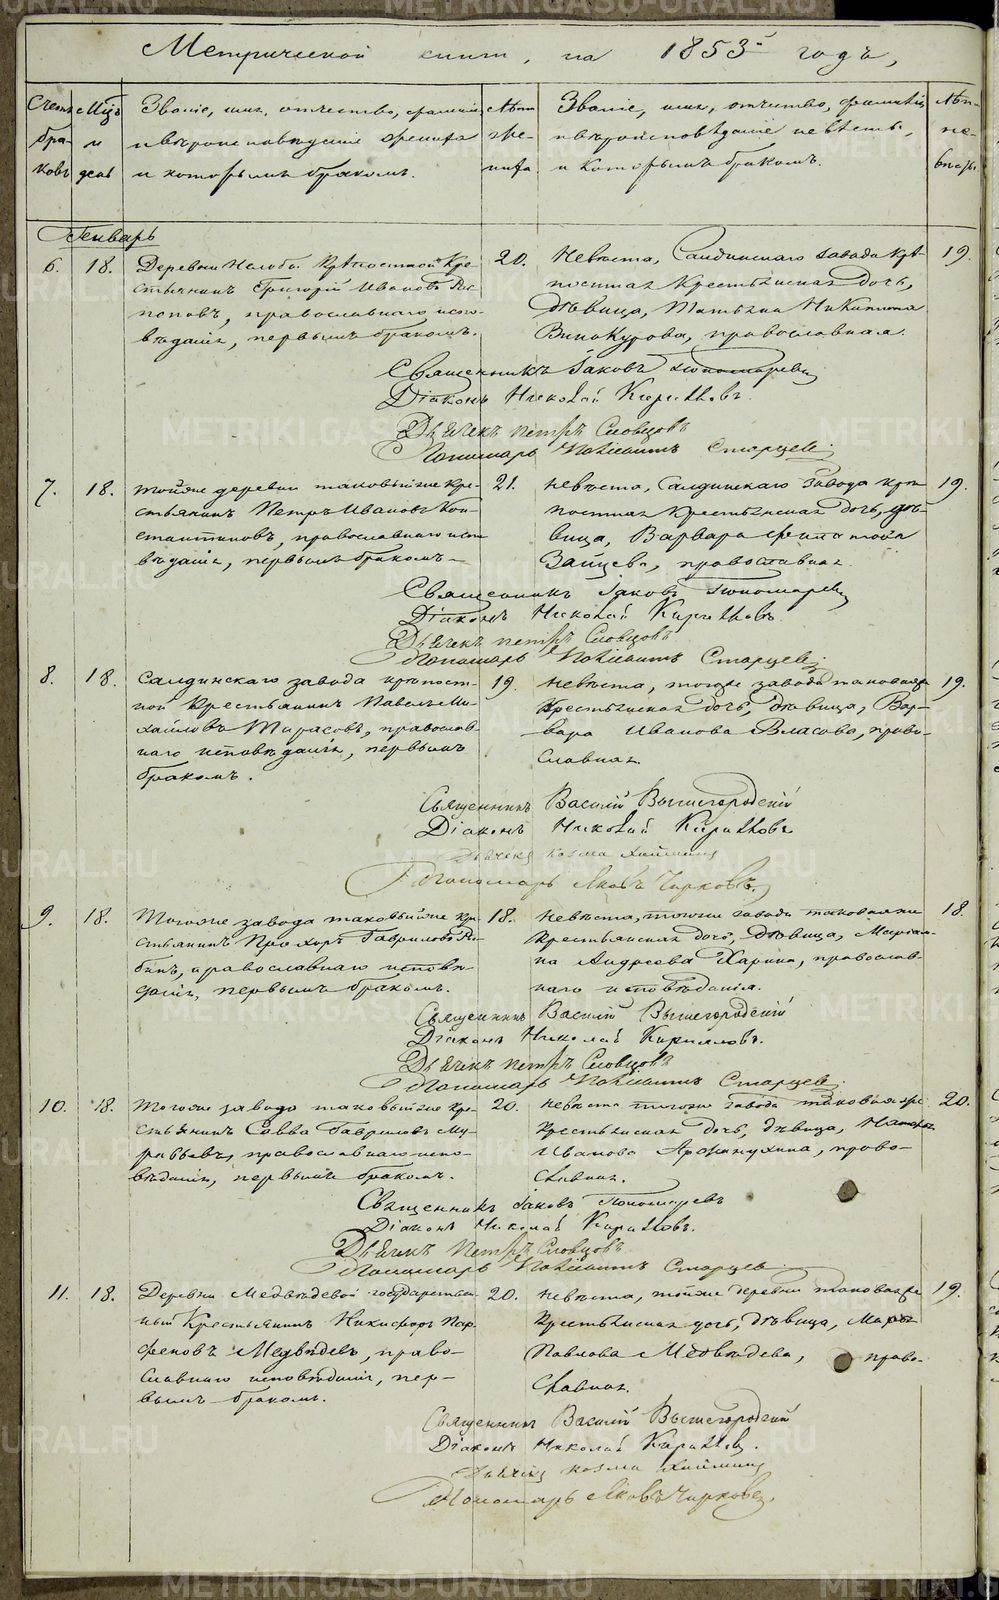 Метрической книги, на 1853й годъ,
Счетъ браковъ
Мцъ и день
Званіе, имя, отчество, фамилія
и вѣроисповѣданіе жениха
и которымъ бракомъ.
Лѣта жениха
Званіе, имя, отчество, фамилія
и вѣроисповѣданіе невѣсты,
и которымъ бракомъ.
Лѣта невѣсты
Генварь
6. 18. Деревни крѣпостной Кре-
стьянинъ Григорій Ивановъ
православнаго испо-
вѣданія, первымъ бракомъ.
20.
Невѣста, Салдинскаго завода крѣ-
постная Крестьянская дочь,
дѣвица, Татьяна Никитина
Винокурова, православная.
19.
Священникъ Іаковъ Пономаревъ
Діаконъ Николай Кирилловъ.
Дьячекъ Петръ Словцовъ
Пономарь Старцевъ
7. 18. Тойже деревни таковыйже кре-
стьянинъ Петръ Ивановъ Кон-
стантиновъ, православнаго испо
вѣданія, первымъ бракомъ
21.
Невѣста, Салдинскаго завода крѣ-
постная крестьянская дочь, дѣ-
вица, Варвара Филатова
Зайцева, православная.
19.
Священникъ Іаковъ Пономаревъ
Діаконъ Николай Кирилловъ
Дьячекъ Петръ Словцовъ
Пономарь Старцевъ
8. 18. Салдинскаго завода крѣпост-
ной Крестьянинъ Павелъ Ми-
хайловъ Тарасовъ, православ-
наго исповѣданія, первымъ
бракомъ.
19.
Невѣста, тогоже завода таковаяже
Крестьянская дочь, дѣвица, Вар-
вара Иванова Власова, право-
славная.
19.
Священникъ Василій Вышегородскій
Діаконъ Николай Кирилловъ
Дьячекъ Козма
Пономарь Яковъ Чирковъ.
9. 18. Тогоже завода таковыйже кре-
стьянинъ Прохоръ Гавриловъ Ря-
бинъ, православнаго исповѣ-
данія, первымъ бракомъ.
18.
Невѣста, тогоже завода таковаяже
Крестьянская дочь, дѣвица, Маріам-
на Андреева Харина, православ-
наго исповѣданія.
18.
Священникъ Василій Вышегородскій
Діаконъ Николай Кирилловъ.
Дьячекъ Петръ Словцовъ
Пономарь Старцевъ
10. 18. Тогоже завода таковыйже кре-
стьянинъ Савва Гавриловъ Му-
равьевъ, православнаго испо-
вѣданія, первымъ бракомъ.
20.
Невѣста тогоже завода таковаяже
Крестьянская дочь, дѣвица,
Иванова право-
славная.
20.
Священникъ Іаковъ Пономаревъ
Діаконъ Николай Кирилловъ.
Дьячекъ Петръ Словцовъ
Пономарь Старцевъ
11. 18. Деревни Медвѣдевой государствен-
ный Крестьянинъ Никифоръ Пар-
феновъ Медвѣдевъ, право-
славнаго исповѣданія, пер-
вымъ бракомъ.
20.
Невѣста, тойже деревни таковаяже
Крестьянская дочь, дѣвица,
Павлова Медвѣдева, право-
славная.
19.
Священникъ Василій Вышегородскій
Діаконъ Николай Кирилловъ.
Дьячекъ Козма
Пономарь Яковъ Чирковъ.
METRIKI.GASO-URAL.RU